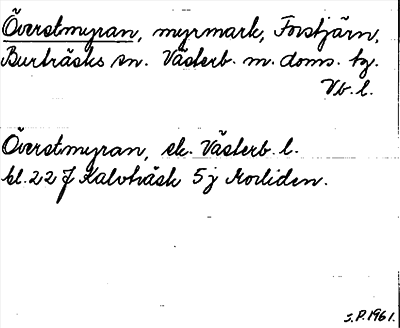 Överstmyran, myrmark, Forstjärn,
Burträsks sn. Västerb. m. doms. tg.
Vb. l.
Överstmyran, ek. Västerb. l.
bl. 22 J Kalvträsk 5 j Morliden.
S.P. 1961.